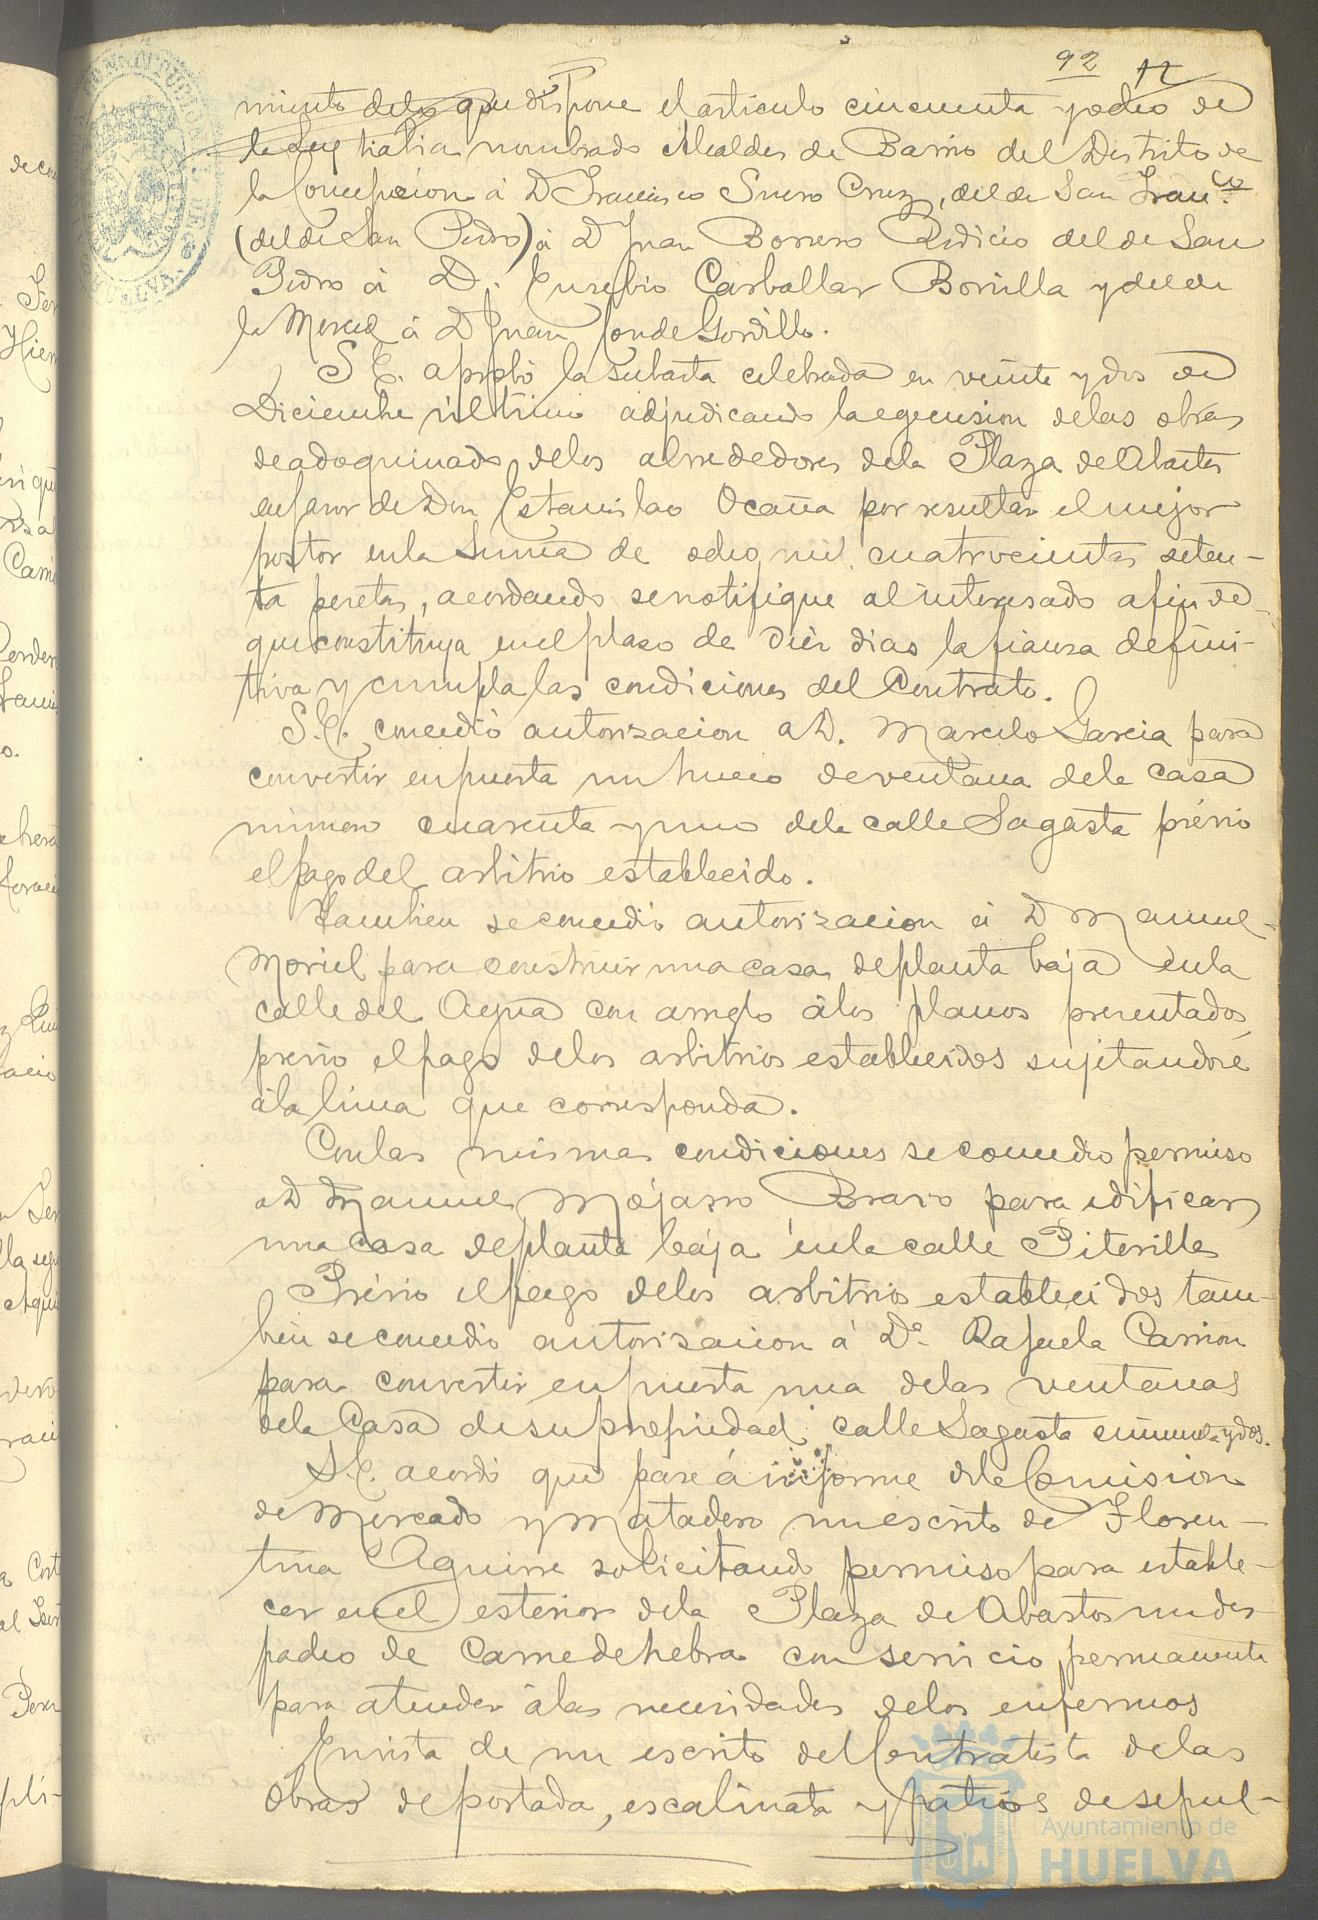 92 12
miento de lo que dispone el articulo cincuenta y ocho de
la Ley habia nombrado Alcaldes de Barrio del Distrito de
la Concepcion á D Francisco Suero Cruz, del de San Franco.
(del de San Pedro) á D Juan Borrero Redicio del de San
Pedro á D. Eusebio Carballar Bonilla y del de
la Merced á D Juan Conde Gordillo.
S E. aprobó la subasta celebrada en veinte y dos de
Diciembre último adjudicando la egecusion de las obras
de adoquinado de los alrededores de la Plaza de Abastos
en favor de Don Estanislao Ocaña por resultar el mejor
postor en la suma de ocho mil cuatrocientas seten-
ta pesetas, acordando se notifique al interesado a fin de
que constituya en el plaso de dies dias la fianza defini-
tiva y cumpla las condiciones del Contrato.
S.E. concedió autorizacion a D. Marcelo Garcia para
convertir en puerta un hueco de ventana de la casa
número cuarenta y uno de la calle Sagasta prévio
el pago del arbitrio establecido.
Tambien se concedió autorizacion á D Manuel
Moriel para construir una casa de planta baja en la
calle del Agua con arreglo á los planos presentados,
previo el pago de los arbitrios establecidos sujetandose
á la linea que corresponda.
Con las mismas condiciones se concedio permiso
a D Manuel Mojarro Bravo para edificar
una casa de planta baja en la calle Piterilla
Prévio el pago de los arbitrios establecidos tam-
bien se concedio autorisacion á Da. Rafaela Carrion
para convertir en puerta una de las ventanas
de la Casa de su propiedad calle Sagasta cincuenta y dos.
S.E. acordó que pase á informe de la Comision
de Mercado y Matadero un escrito de Floren-
tina Aguirre solicitando permiso para estable-
cer en el esterior de la Plaza de Abastos un des
pacho de Carne de hebra con servicio permanente
para atender á las necesidades de los enfermos
En vista de un escrito del Contratista de las
obras de portada, escalinata y patios de sepul-
Ayuntamiento de
HUELVA